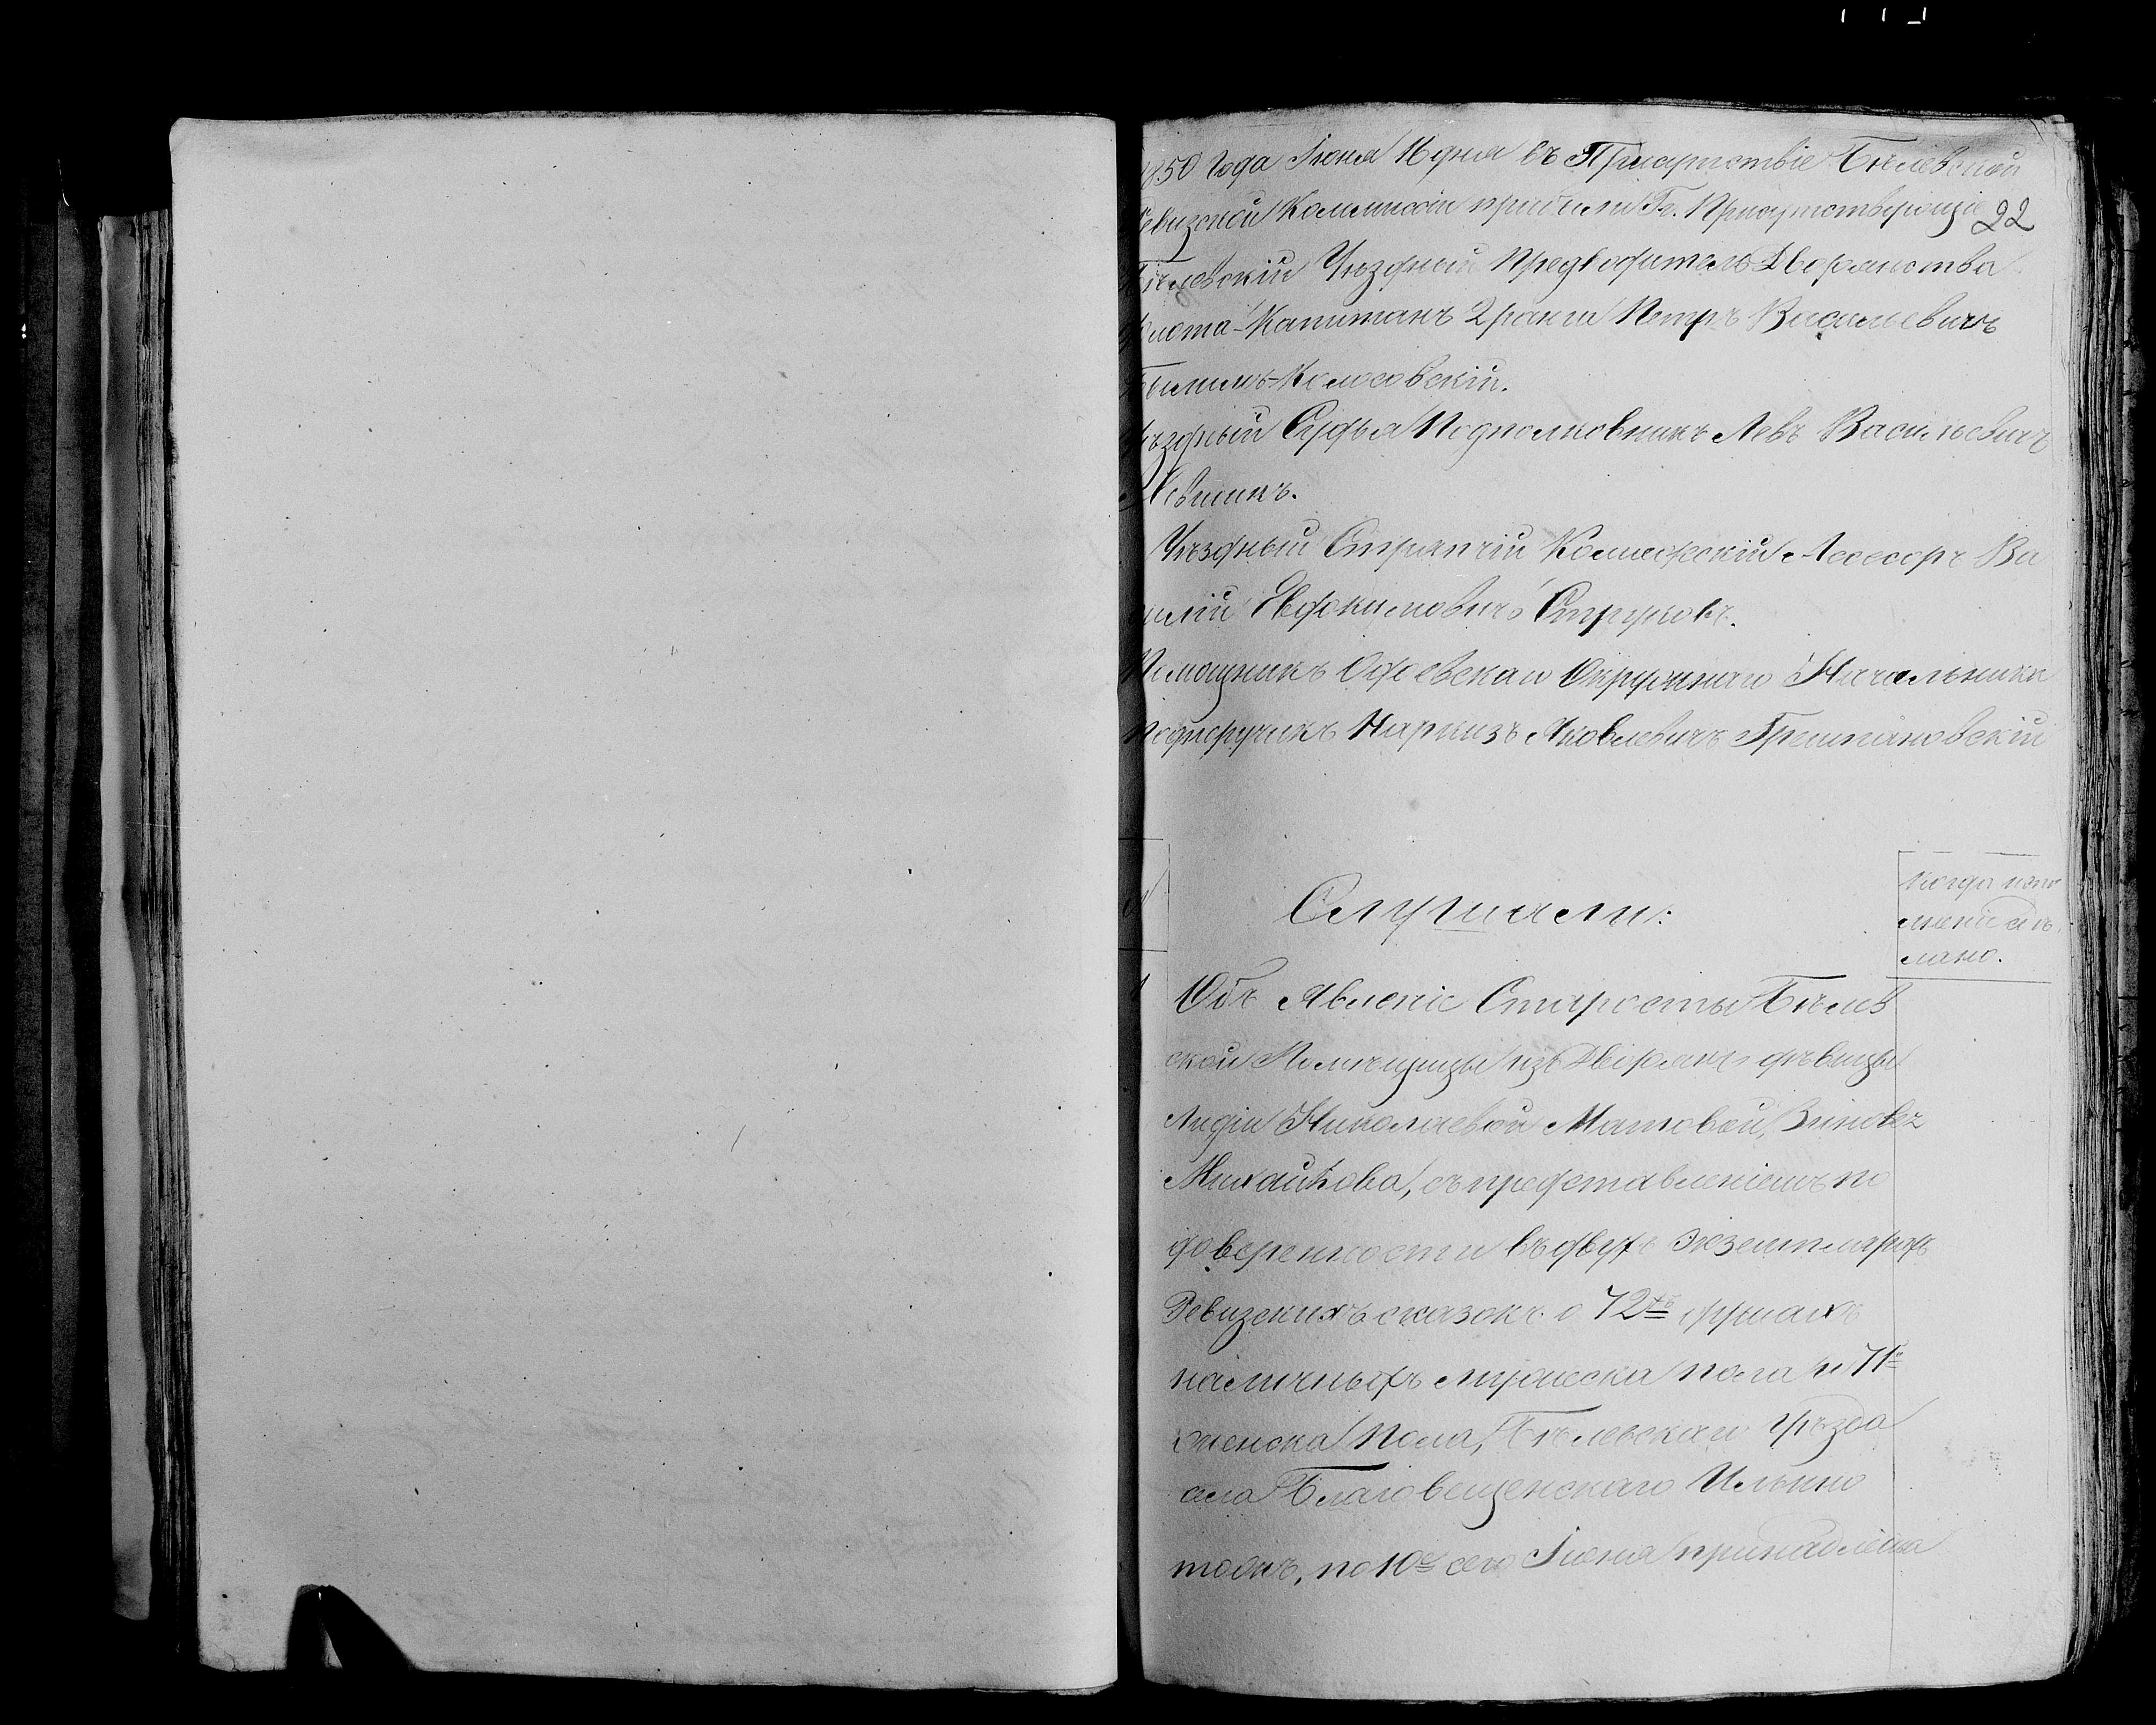 1850 Года Іюня 16 дня въ Присутствіе Бѣлевской
Ревизской Коммисіи прибыли Гг. Присутствующіе
22
Бѣлевскій Уѣздный Предводитель Дворянства
Флота-Капитанъ 2 ранга Петръ Васильевичъ
Уѣздный Судья Подполковникъ Левъ Васильевичъ
Левшинъ.
Уѣздный Стряпчій Коллежскій Ассесоръ Ва
силій Евдокимовичъ Струковъ.
Помощникъ Одоевскаго Окружнаго Начальника
Подпоручикъ Наркизъ Яковлевичъ
Слушали:
Когда испо
лненіе сдѣ
лано.
Объ Явленіе Старосты Бѣлев
ской Помѣщицы изъ Дворянъ дѣвицы
Лидіи Николаевой Матовой, Зиновѣ
Михайлова, съ представленіемъ по
доверенности въ двухъ экземплярахъ
Ревизскихъ сказокъ о 72хъ душахъ
наличныхъ мужеска пола и 71й
женска Пола, Бѣлевскаго Уѣзда
села Благовещенскаго Ильино
тожъ, по 10е сего Іюня